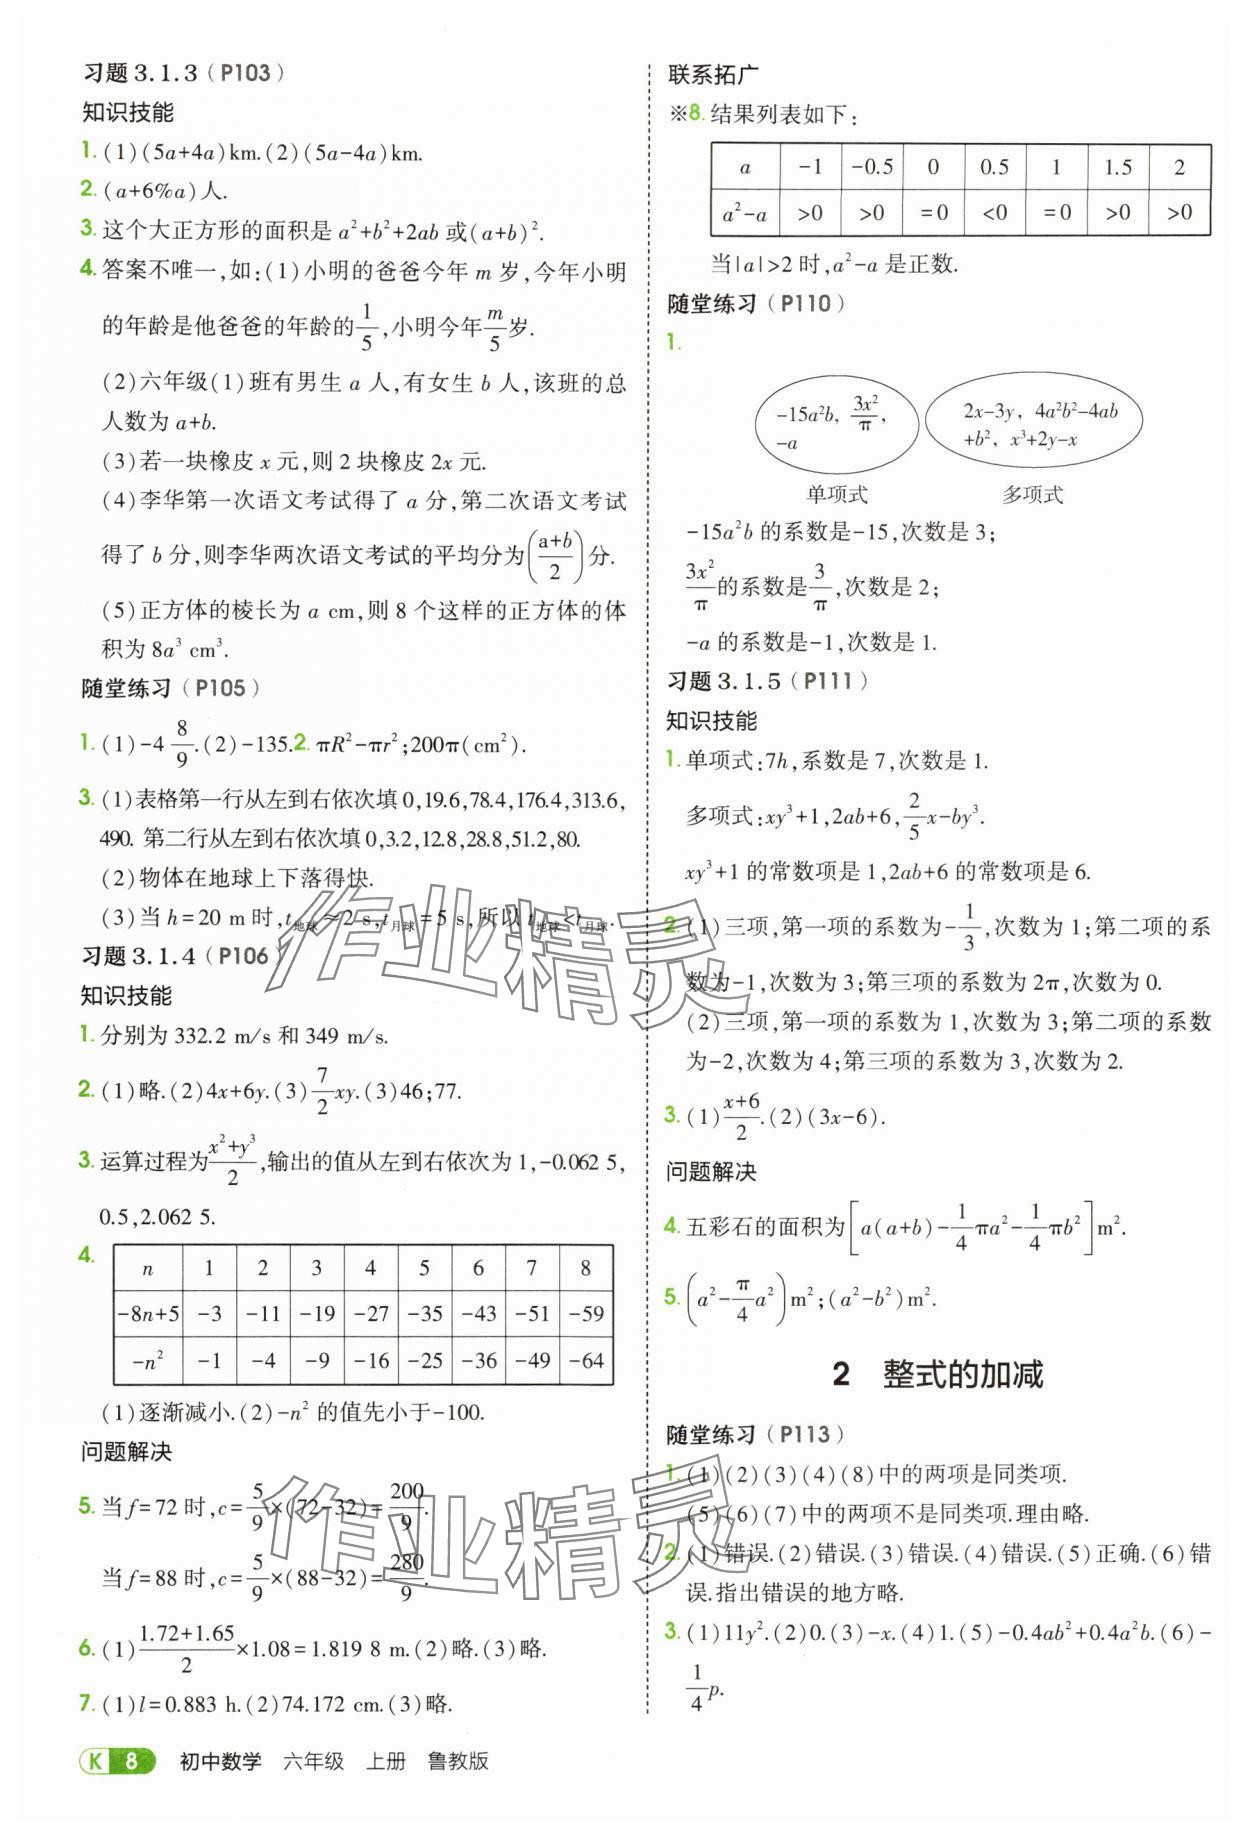 习题3.1.3(P103)
知识技能
1.(1)(5a+4a)km.(2)(5a-4a)km.
2.(a+6%a)人.
3.这个大正方形的面积是a²+b²+2ab或(a+b)².
4.答案不唯一,如:(1)小明的爸爸今年m岁,今年小明
的年龄是他爸爸的年龄的1/5,小明今年m/5岁.
(2)六年级(1)班有男生a人,有女生b人,该班的总
人数为a+b.
(3)若一块橡皮x元,则2块橡皮2x元.
(4)李华第一次语文考试得了a分,第二次语文考试
得了b分,则李华两次语文考试的平均分为((a+b)/2)分.
(5)正方体的棱长为a cm,则8个这样的正方体的体
积为8a³ cm³.
随堂练习(P105)
1.(1)-4 8/9.(2)-135.2.πR²-πr²;200π(cm²).
3.(1)表格第一行从左到右依次填0,19.6,78.4,176.4,313.6,
490. 第二行从左到右依次填0,3.2,12.8,28.8,51.2,80.
(2)物体在地球上下落得快.
(3)当h=20 m时,t地球≈2 s,t月球=5 s,所以t地球<t月球.
习题3.1.4(P106)
知识技能
1.分别为332.2 m/s和349 m/s.
2.(1)略.(2)4x+6y.(3)7/2xy.(3)46;77.
3.运算过程为(x²+y³)/2,输出的值从左到右依次为1,-0.062 5,
0.5,2.062 5.
4.
n 1 2 3 4 5 6 7 8
-8n+5 -3 -11 -19 -27 -35 -43 -51 -59
-n² -1 -4 -9 -16 -25 -36 -49 -64
(1)逐渐减小.(2)-n²的值先小于-100.
问题解决
5.当f=72时,c=5/9×(72-32)=200/9.
当f=88时,c=5/9×(88-32)=280/9.
6.(1)(1.72+1.65)/2×1.08=1.819 8 m.(2)略.(3)略.
7.(1)l=0.883 h.(2)74.172 cm.(3)略.
K 8 初中数学 六年级 上册 鲁教版
联系拓广
※8.结果列表如下:
a -1 -0.5 0 0.5 1 1.5 2
a²-a >0 >0 =0 <0 =0 >0 >0
当|a|>2时,a²-a是正数.
随堂练习(P110)
1.
-15a²b, 3x²/π,
-a
2x-3y, 4a²b²-4ab
+b², x³+2y-x
单项式 多项式
-15a²b的系数是-15,次数是3;
3x²/π的系数是3/π,次数是2;
-a的系数是-1,次数是1.
习题3.1.5(P111)
知识技能
1.单项式:7h,系数是7,次数是1.
多项式:xy³+1,2ab+6,2/5x-by³.
xy³+1的常数项是1,2ab+6的常数项是6.
2.(1)三项,第一项的系数为-1/3,次数为1;第二项的系
数为-1,次数为3;第三项的系数为2π,次数为0.
(2)三项,第一项的系数为1,次数为3;第二项的系数
为-2,次数为4;第三项的系数为3,次数为2.
3.(1)(x+6)/2.(2)(3x-6).
问题解决
4.五彩石的面积为[a(a+b)-1/4πa²-1/4πb²]m².
5.(a²-π/4a²)m²;(a²-b²)m².
2 整式的加减
随堂练习(P113)
1.(1)(2)(3)(4)(8)中的两项是同类项.
(5)(6)(7)中的两项不是同类项.理由略.
2.(1)错误.(2)错误.(3)错误.(4)错误.(5)正确.(6)错
误.指出错误的地方略.
3.(1)11y².(2)0.(3)-x.(4)1.(5)-0.4ab²+0.4a²b.(6)-
1/4p.
作业精灵
作业精灵